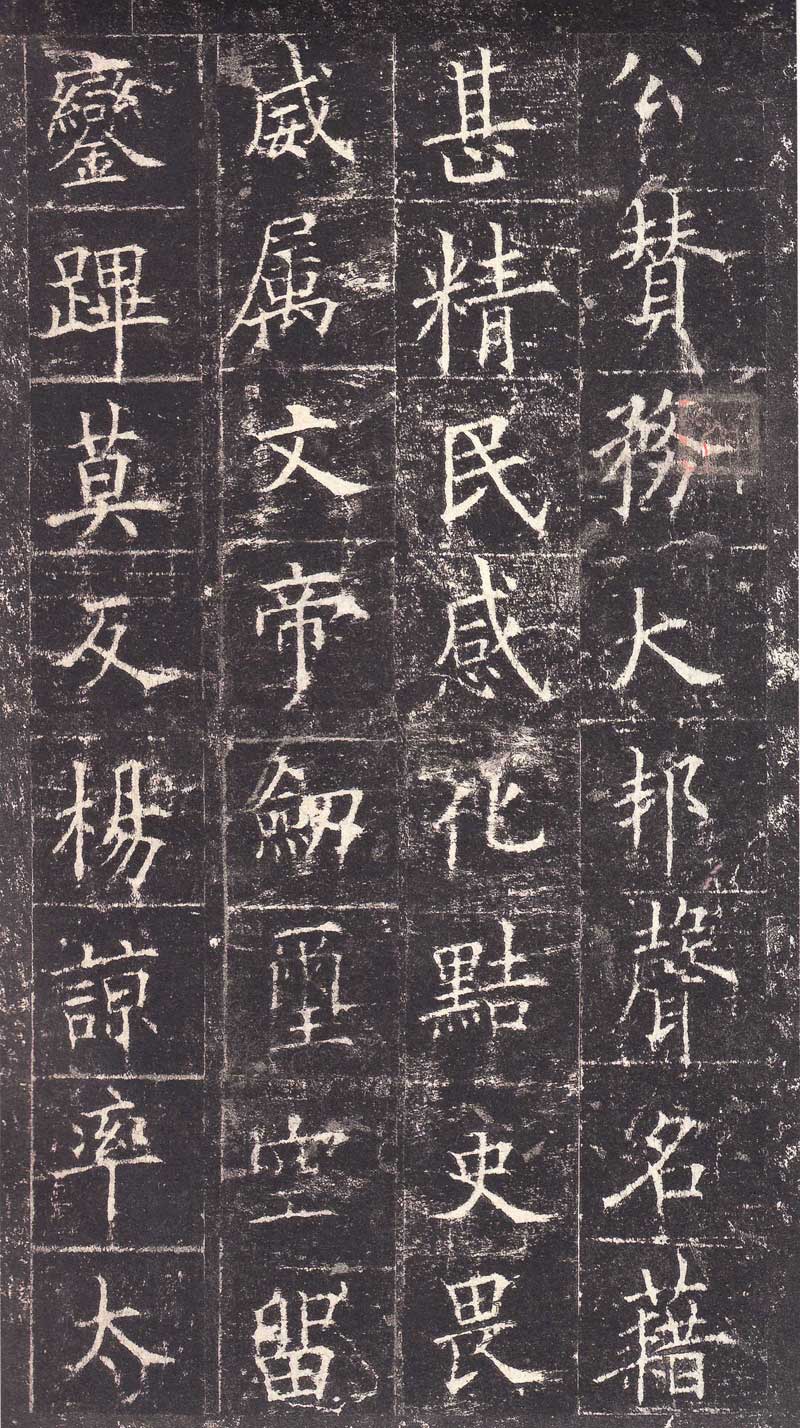 公贊務大邦聲名藉
甚精民感化黠吏畏
威属文帝劒璽空留
鑾蹕莫反楊諒率太